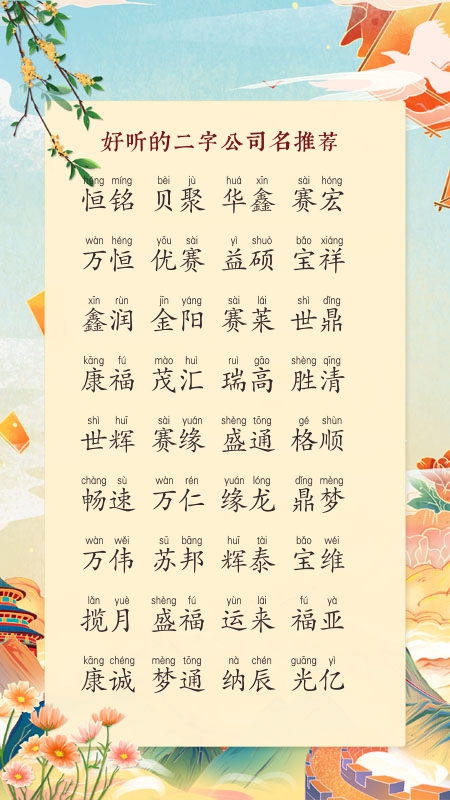 好听的二字公司名推荐
héng míng bèi jù huá xīn sài hóng
恒铭 贝聚 华鑫 赛宏
wàn héng yōu sài yì shuò bǎo xiáng
万恒 优赛 益硕 宝祥
xīn rùn jīn yáng sài lái shì dǐng
鑫润 金阳 赛莱 世鼎
kāng fú mào huì ruì gāo shèng qīng
康福 茂汇 瑞高 胜清
shì huī sài yuán shèng tōng gé shùn
世辉 赛缘 盛通 格顺
chàng sù wàn rén yuán lóng dǐng mèng
畅速 万仁 缘龙 鼎梦
wàn wěi sū bāng huī tài bǎo wéi
万伟 苏邦 辉泰 宝维
lǎn yuè shèng fú yùn lái fú yà
揽月 盛福 运来 福亚
kāng chéng mèng tōng nà chén guāng yì
康诚 梦通 纳辰 光亿